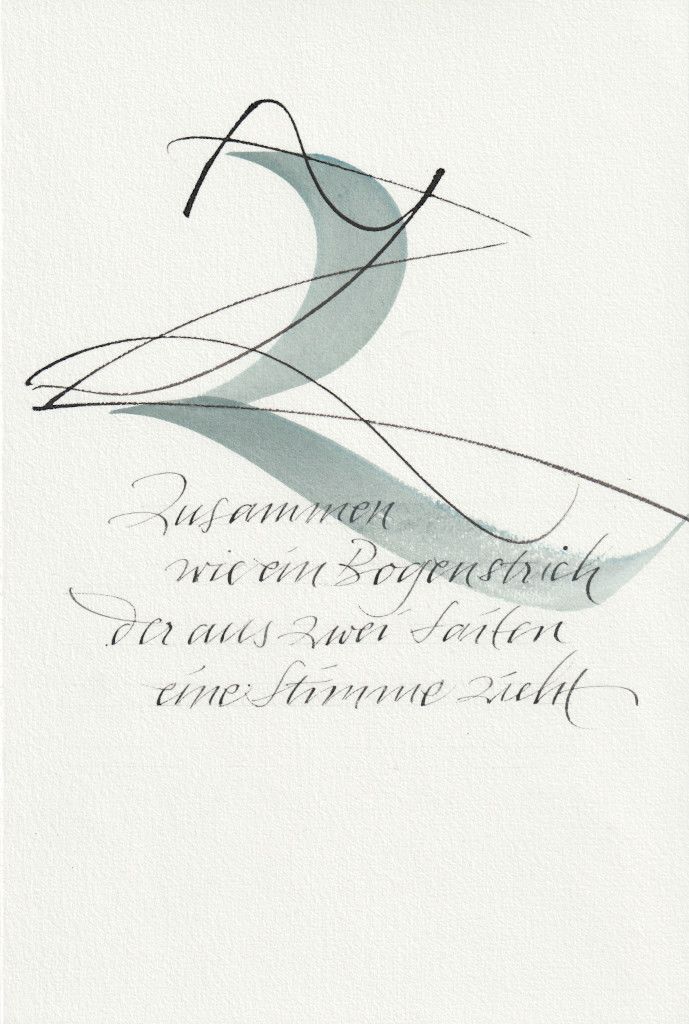 Zusammen
wie ein Bogenstrich
der aus zwei Saiten
eine Stimme zieht